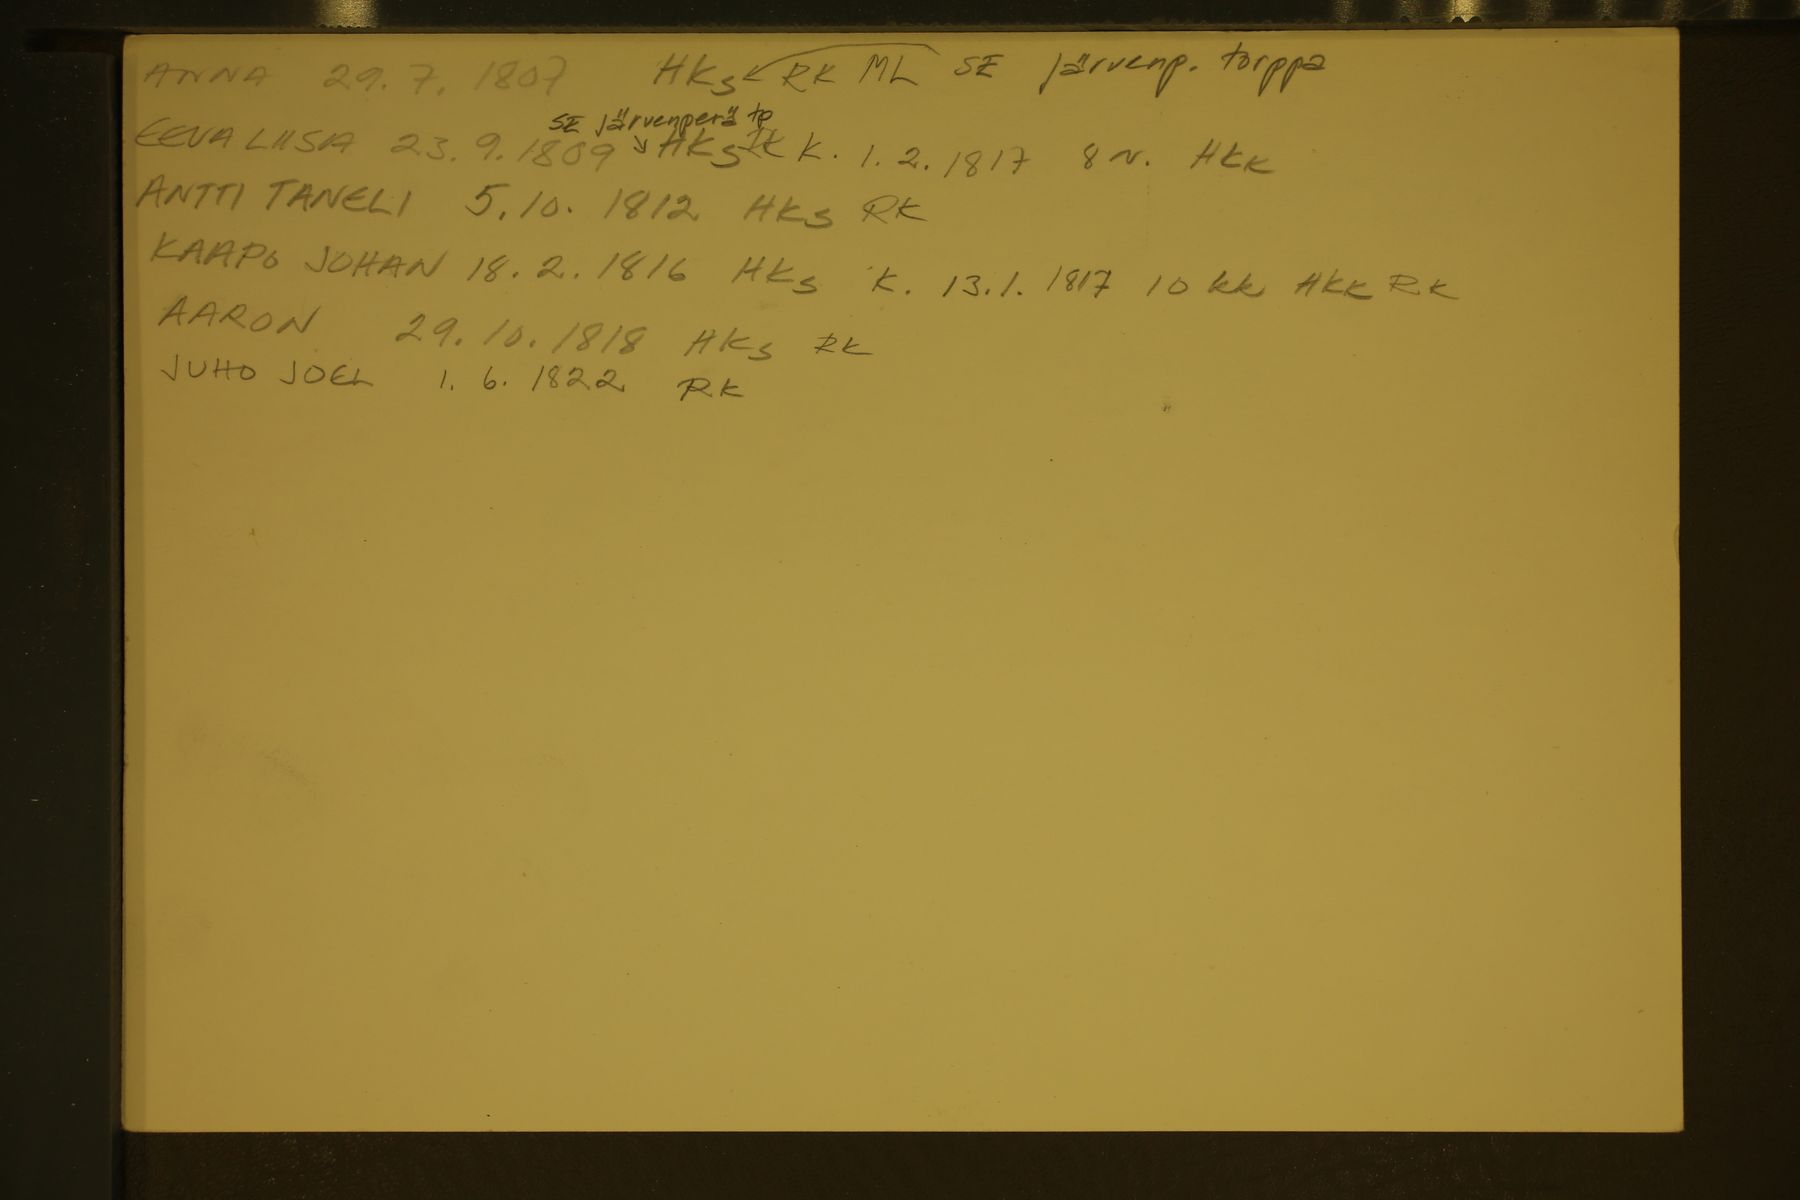 ANNA 29.7.1807 HKS RK ML SE järvenp. torppa
SE järvenperä tp
EEVA LIISA 23.9.1809 HKS RK K. 1.2.1817 8 v. HKK
ANTTI TANELI 5.10.1812 HKS RK
KAAPO JOHAN 18.2.1816 HKS K. 13.1.1817 10 kk HKK RK
AARON 29.10.1818 HKS RK
JUHO JOEL 1.6.1822 RK